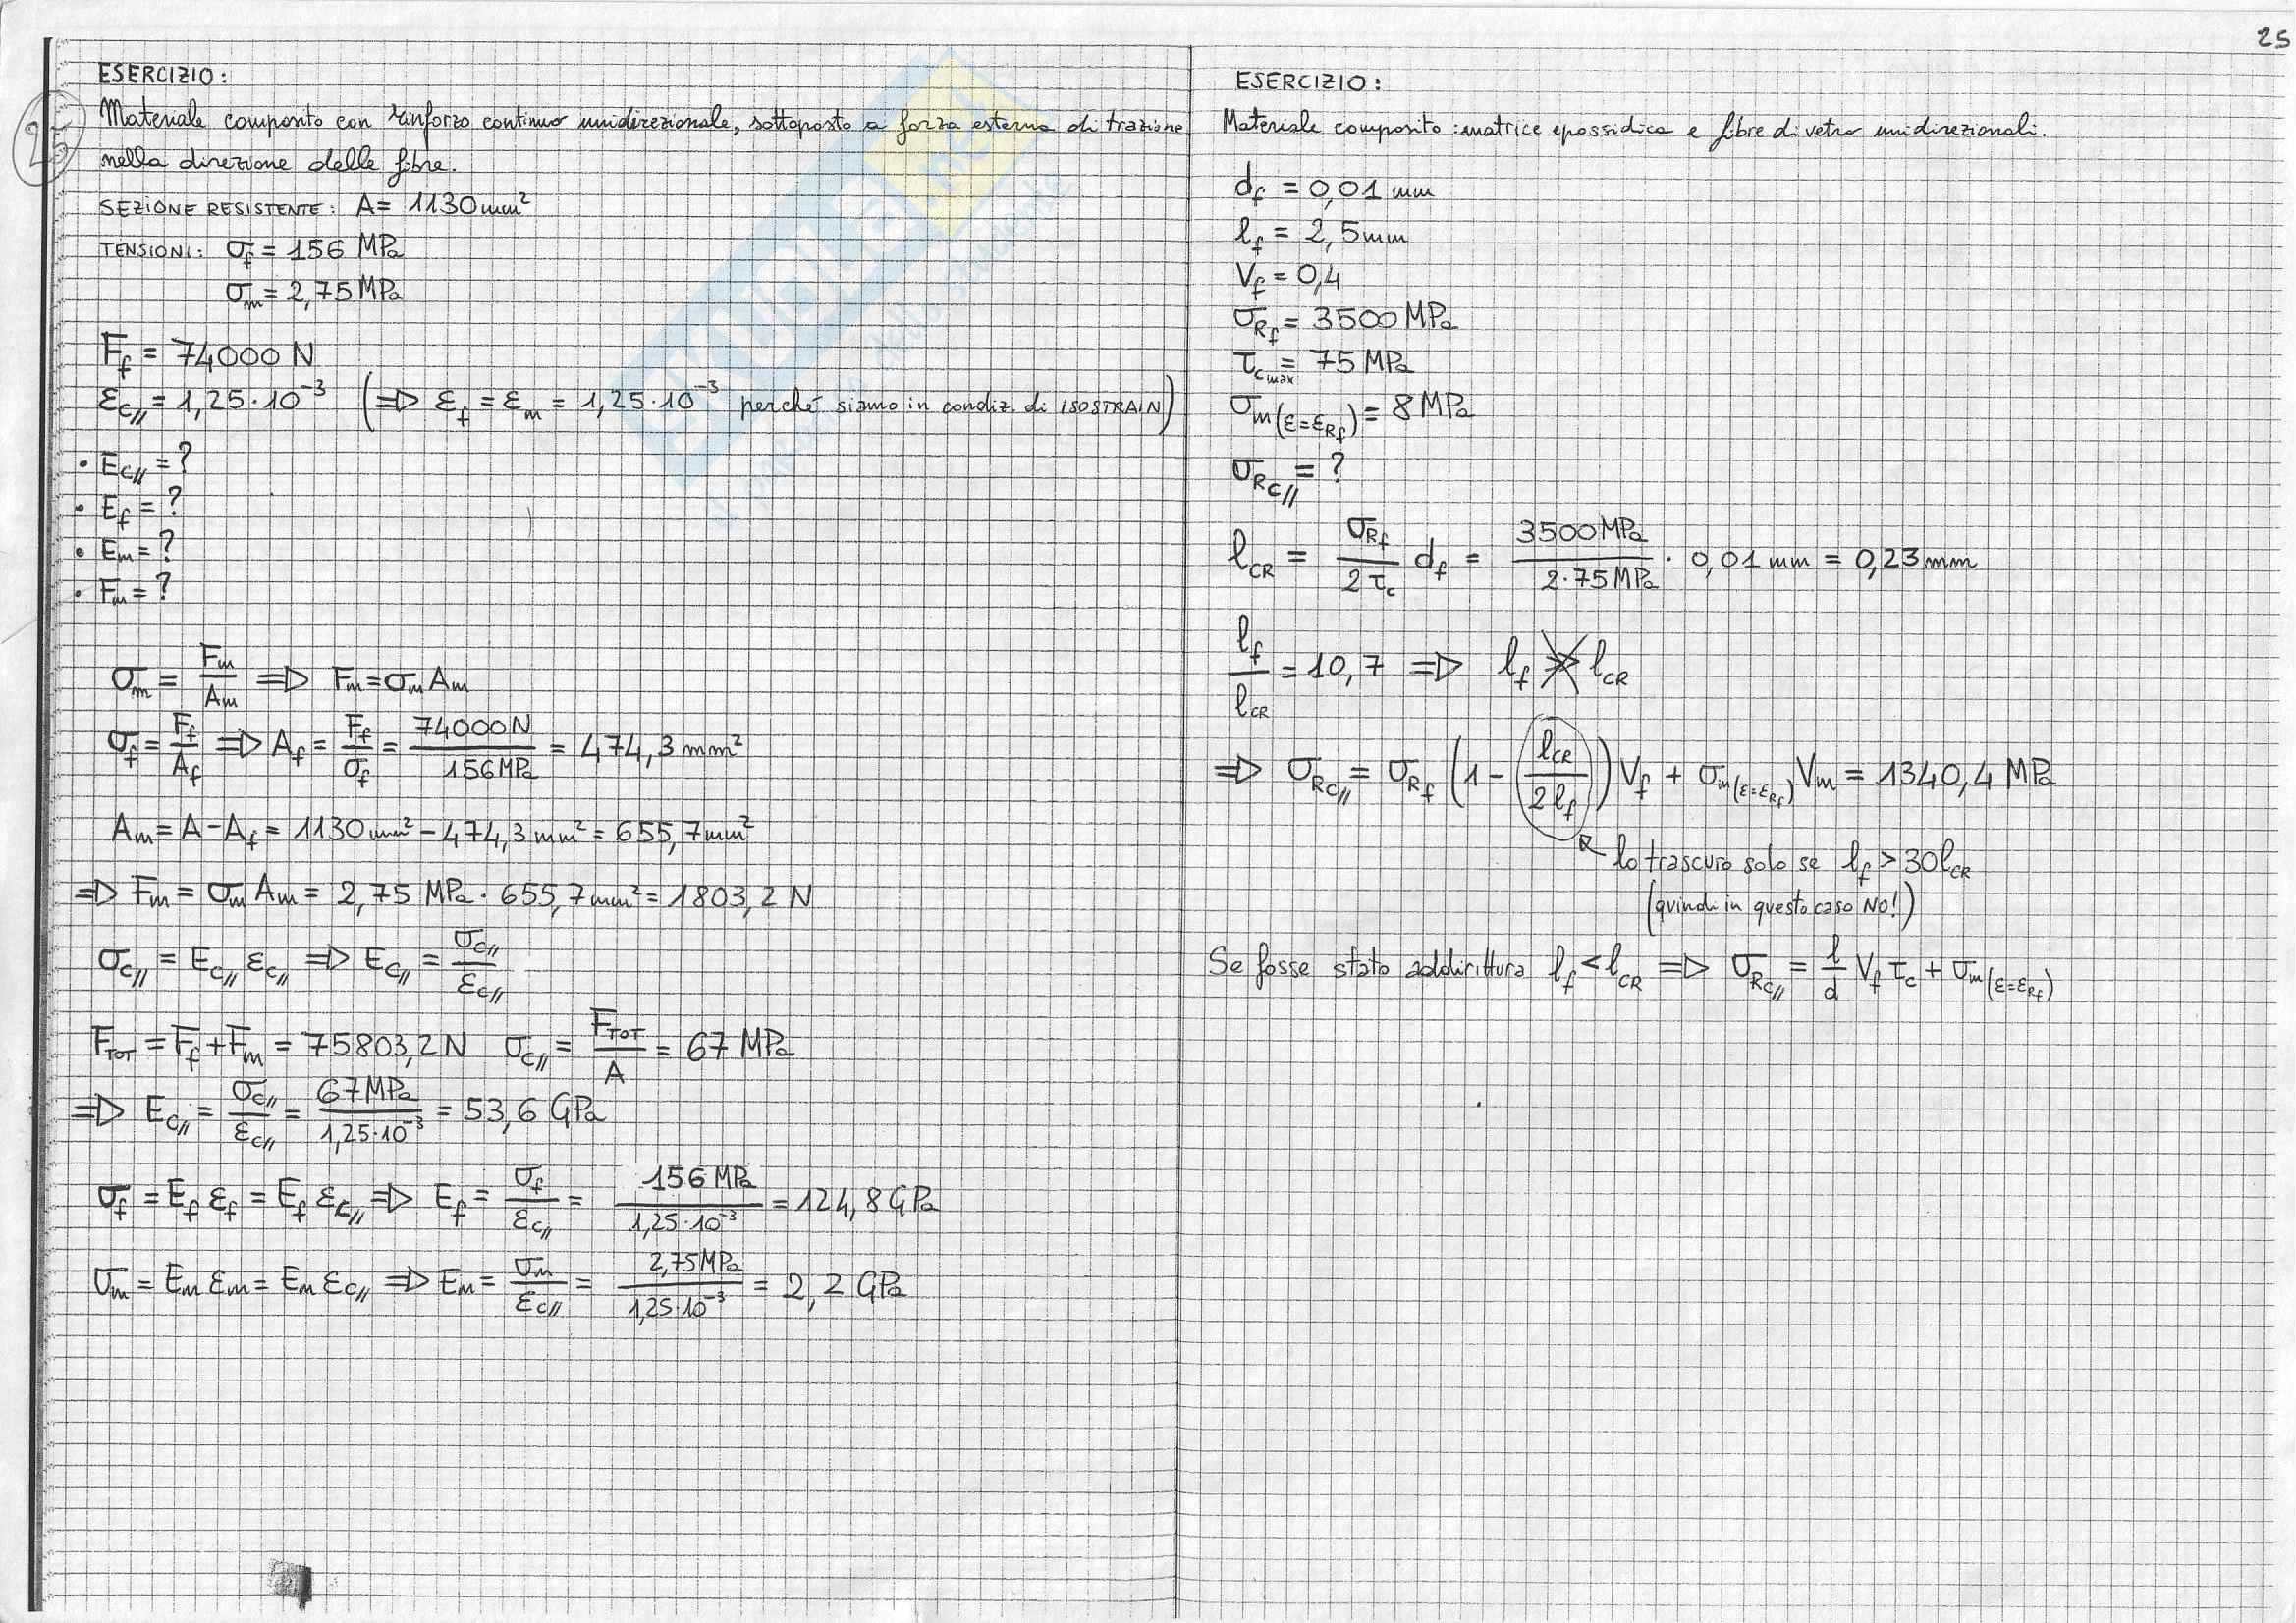 25
ESERCIZIO:
25
Materiale composito con rinforzo continuo unidirezionale, sottoposto a forza esterna di trazione
nella direzione delle fibre.
SEZIONE RESISTENTE: A = 1130 mm²
TENSIONI: σ_f = 156 MPa
σ_m = 2,75 MPa
F_f = 74000 N
ε_C// = 1,25·10⁻³ (⇒ ε_f = ε_m = 1,25·10⁻³ perché siamo in condiz. di ISOSTRAIN)
• E_C// = ?
• E_f = ?
• E_m = ?
• F_m = ?
σ_m = F_m/A_m ⇒ F_m = σ_m A_m
σ_f = F_f/A_f ⇒ A_f = F_f/σ_f = 74000 N/156 MPa = 474,3 mm²
A_m = A - A_f = 1130 mm² - 474,3 mm² = 655,7 mm²
⇒ F_m = σ_m A_m = 2,75 MPa · 655,7 mm² = 1803,2 N
σ_C// = E_C// ε_C// ⇒ E_C// = σ_C///ε_C//
F_TOT = F_f + F_m = 75803,2 N σ_C// = F_TOT/A = 67 MPa
⇒ E_C// = σ_C///ε_C// = 67 MPa/1,25·10⁻³ = 53,6 GPa
σ_f = E_f ε_f = E_f ε_C// ⇒ E_f = σ_f/ε_C// = 156 MPa/1,25·10⁻³ = 124,8 GPa
σ_m = E_m ε_m = E_m ε_C// ⇒ E_m = σ_m/ε_C// = 2,75 MPa/1,25·10⁻³ = 2,2 GPa
ESERCIZIO:
Materiale composito: matrice epossidica e fibre di vetro unidirezionali.
d_f = 0,01 mm
l_f = 2,5 mm
V_f = 0,4
σ_Rf = 3500 MPa
τ_cmax = 75 MPa
σ_m(ε=ε_Rf) = 8 MPa
σ_RC// = ?
l_CR = σ_Rf/2τ_c d_f = 3500 MPa/2·75 MPa · 0,01 mm = 0,23 mm
l_f/l_CR = 10,7 ⇒ l_f ≫̸ l_CR
⇒ σ_RC// = σ_Rf (1 - (l_CR/2l_f)) V_f + σ_m(ε=ε_Rf) V_m = 1340,4 MPa
lo trascuro solo se l_f > 30 l_CR
(quindi in questo caso NO!)
Se fosse stato addirittura l_f < l_CR ⇒ σ_RC// = l/d V_f τ_c + σ_m(ε=ε_Rf)
SKUOLA.net